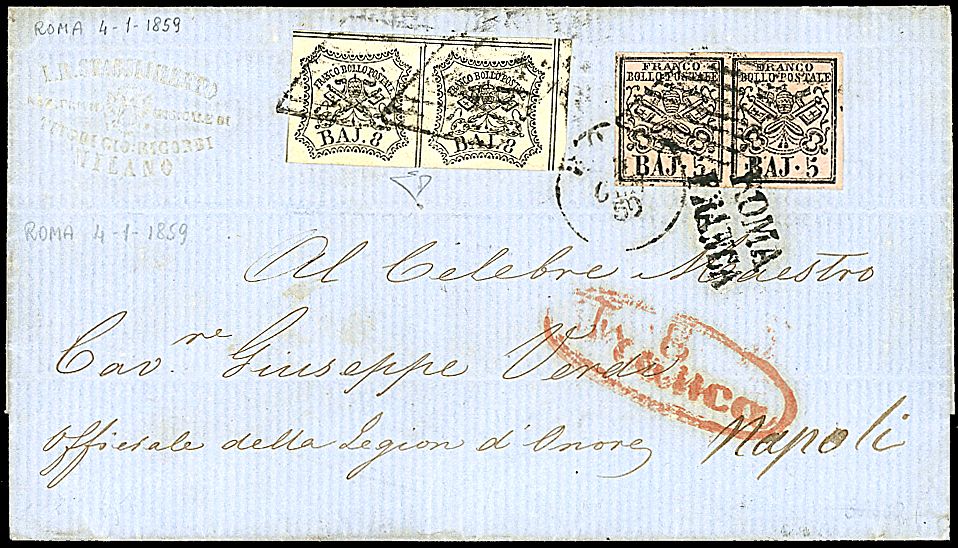 ROMA 4-1-1859
TITO DI GIO. RICORDI
MILANO
FRANCO BOLLO POSTALE
BAJ. 8
FRANCO BOLLO POSTALE
BAJ. 8
FRANCO
BOLLO POSTALE
BAJ. 5
FRANCO
BOLLO POSTALE
BAJ. 5
ROMA
FRANCA
ROMA 4-1-1859
Al Celebre Maestro
Cav.re Giuseppe Verdi
Officiale della Legion d'Onore Napoli
Franca